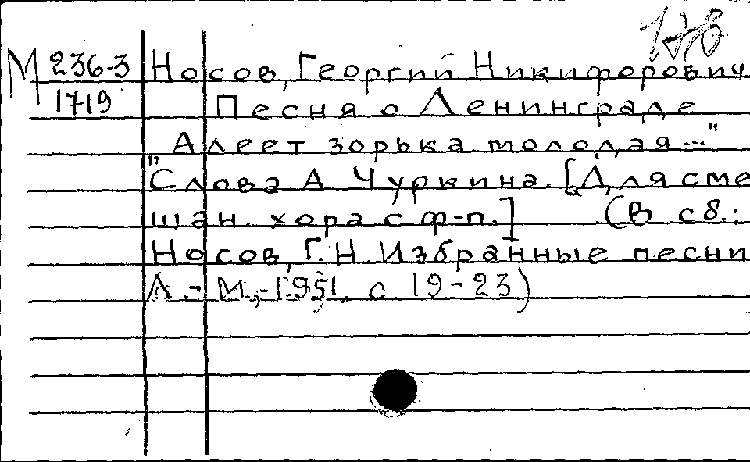 М 236-3 Носов, Георгий Никифорович
1719 Песня о Ленинграде
"Алеет зорька молодая..."
Слова А Чуркина. [Для сме
шан. хора с ф-п.] (В сб.:
Носов, Г.Н. Избранные песни
Л.-М., 1951, с 19-23)